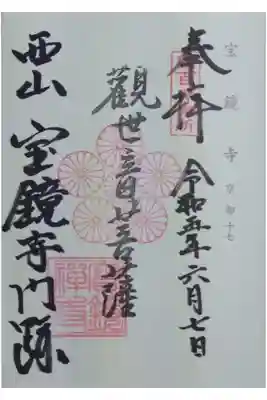 宝鏡寺 京都十七
奉拝 令和五年六月七日
觀世音菩薩
西山 宝鏡寺門跡